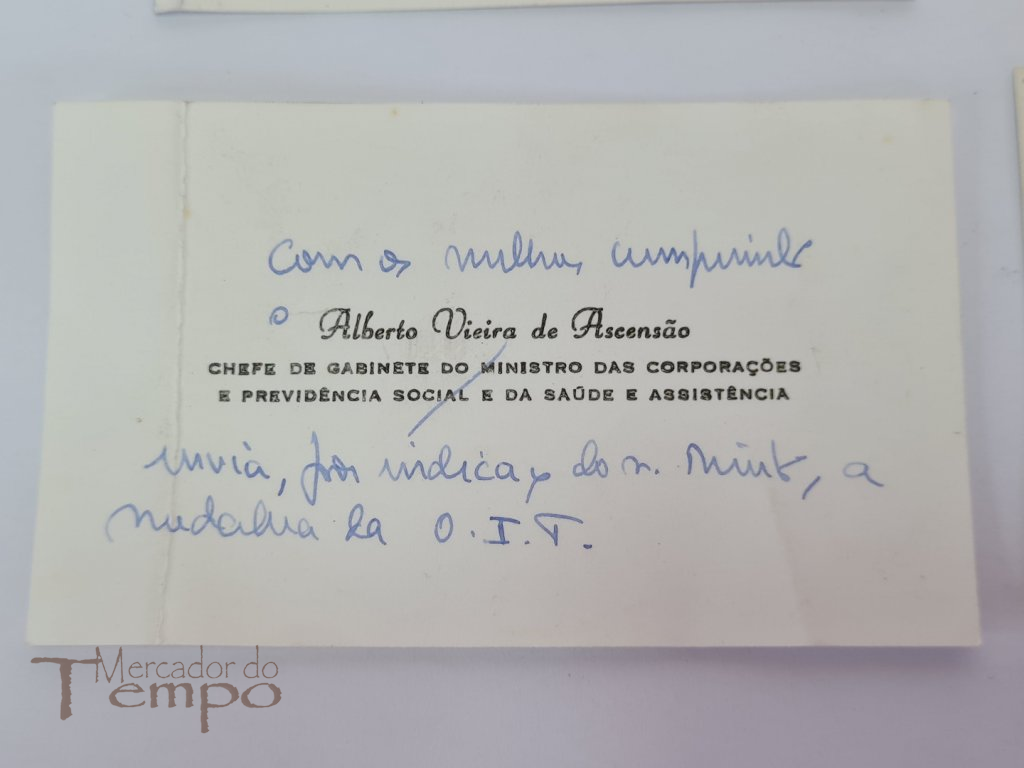 Com os melhores cumprimentos
o Alberto Vieira de Ascensão
CHEFE DE GABINETE DO MINISTRO DAS CORPORAÇÕES
E PREVIDÊNCIA SOCIAL E DA SAÚDE E ASSISTÊNCIA
envia, por indicação do Minist, a
medalha da O.I.T.
Mercador do
Tempo